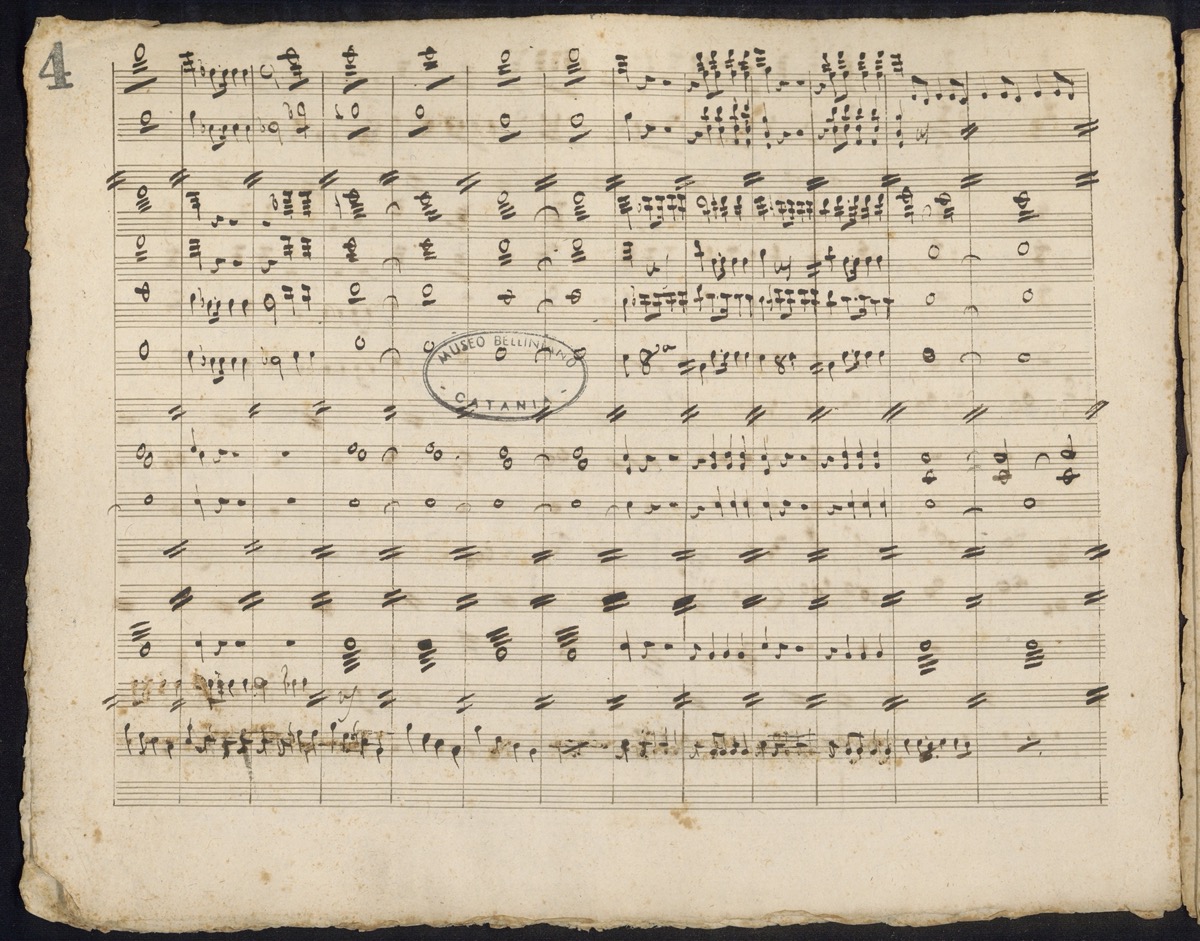 4
8va
MUSEO BELLINIANO
- CATANIA -
8a